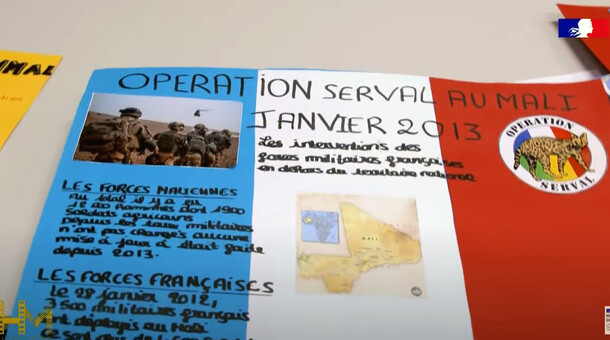 OPERATION SERVAL AU MALI
JANVIER 2013
Les interventions des
forces militaires françaises
en dehors du territoire national
OPERATION
SERVAL
MALI
LES FORCES
Au total il y a eu
hommes dont 1900
soldats
depuis les
n'ont pas changés aucune
mise à jour
depuis 2013.
LES FORCES FRANÇAISES
Le 28 janvier 2012,
3 500 militaires français
ont déployés au Mali
HM